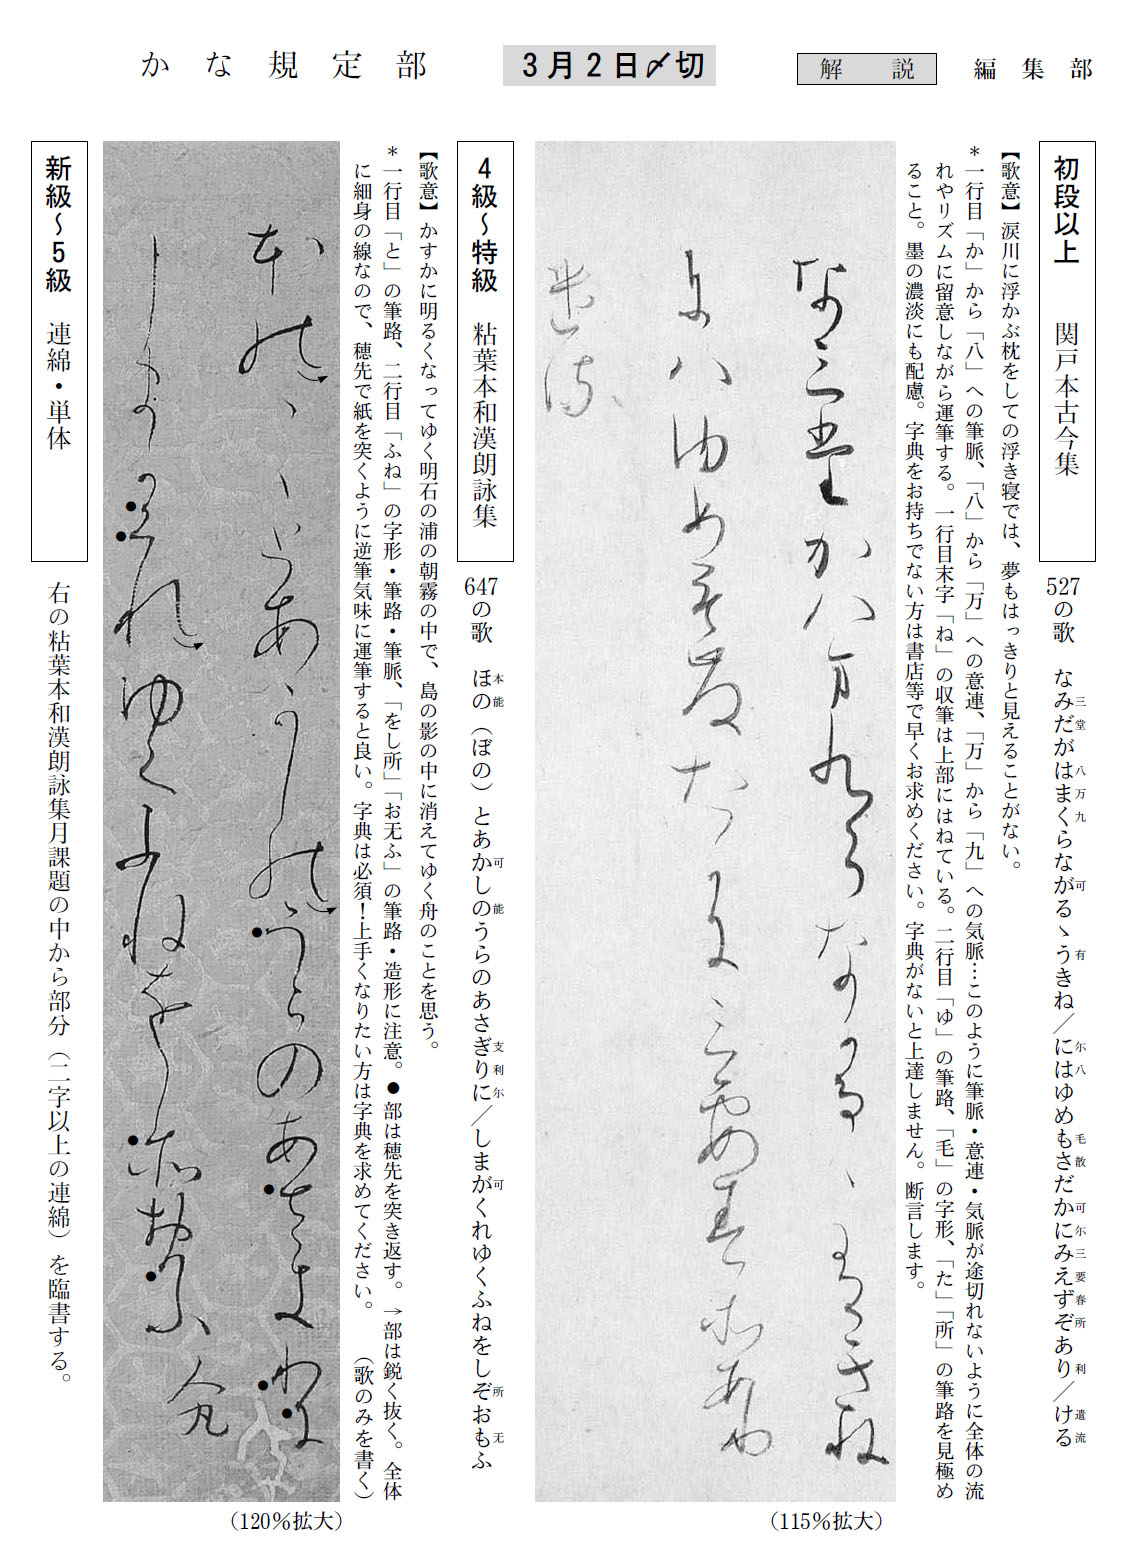 かな規定部
3月2日〆切
解説
編集部
初段以上 関戸本古今集
527の歌 なみだがはまくらながるゝうきね／にはゆめもさだかにみえずぞあり／ける
三堂 八万九 可 有 尓八 毛散 可尓三要春所 利 遣流
【歌意】涙川に浮かぶ枕をしての浮き寝では、夢もはっきりと見えることがない。
＊一行目「か」から「八」への筆脈、「八」から「万」への意連、「万」から「九」への気脈…このように筆脈・意連・気脈が途切れないように全体の流
れやリズムに留意しながら運筆する。一行目末字「ね」の収筆は上部にはねている。二行目「ゆ」の筆路、「毛」の字形、「た」「所」の筆路を見極め
ること。墨の濃淡にも配慮。字典をお持ちでない方は書店等で早くお求めください。字典がないと上達しません。断言します。
なみ堂かは万九らなかるゝ有きね
尓八ゆめ毛散た可尓三要春所あり
遣流
（115％拡大）
4級～特級 粘葉本和漢朗詠集
647の歌 ほの（ぼの）とあかしのうらのあさぎりに／しまがくれゆくふねをしぞおもふ
本能 可 能 支利尓 可 所 无
【歌意】かすかに明るくなってゆく明石の浦の朝霧の中で、島の影の中に消えてゆく舟のことを思う。
＊一行目「と」の筆路、二行目「ふね」の字形・筆路・筆脈、「をし所」「お无ふ」の筆路・造形に注意。●部は穂先を突き返す。→部は鋭く抜く。全体
に細身の線なので、穂先で紙を突くように逆筆気味に運筆すると良い。字典は必須！上手くなりたい方は字典を求めてください。（歌のみを書く）
本能ゝゝとあ可し能うらのあさ支利尓
しま可くれゆくふねをし所お无ふ
（120％拡大）
新級～5級 連綿・単体
右の粘葉本和漢朗詠集月課題の中から部分（二字以上の連綿）を臨書する。